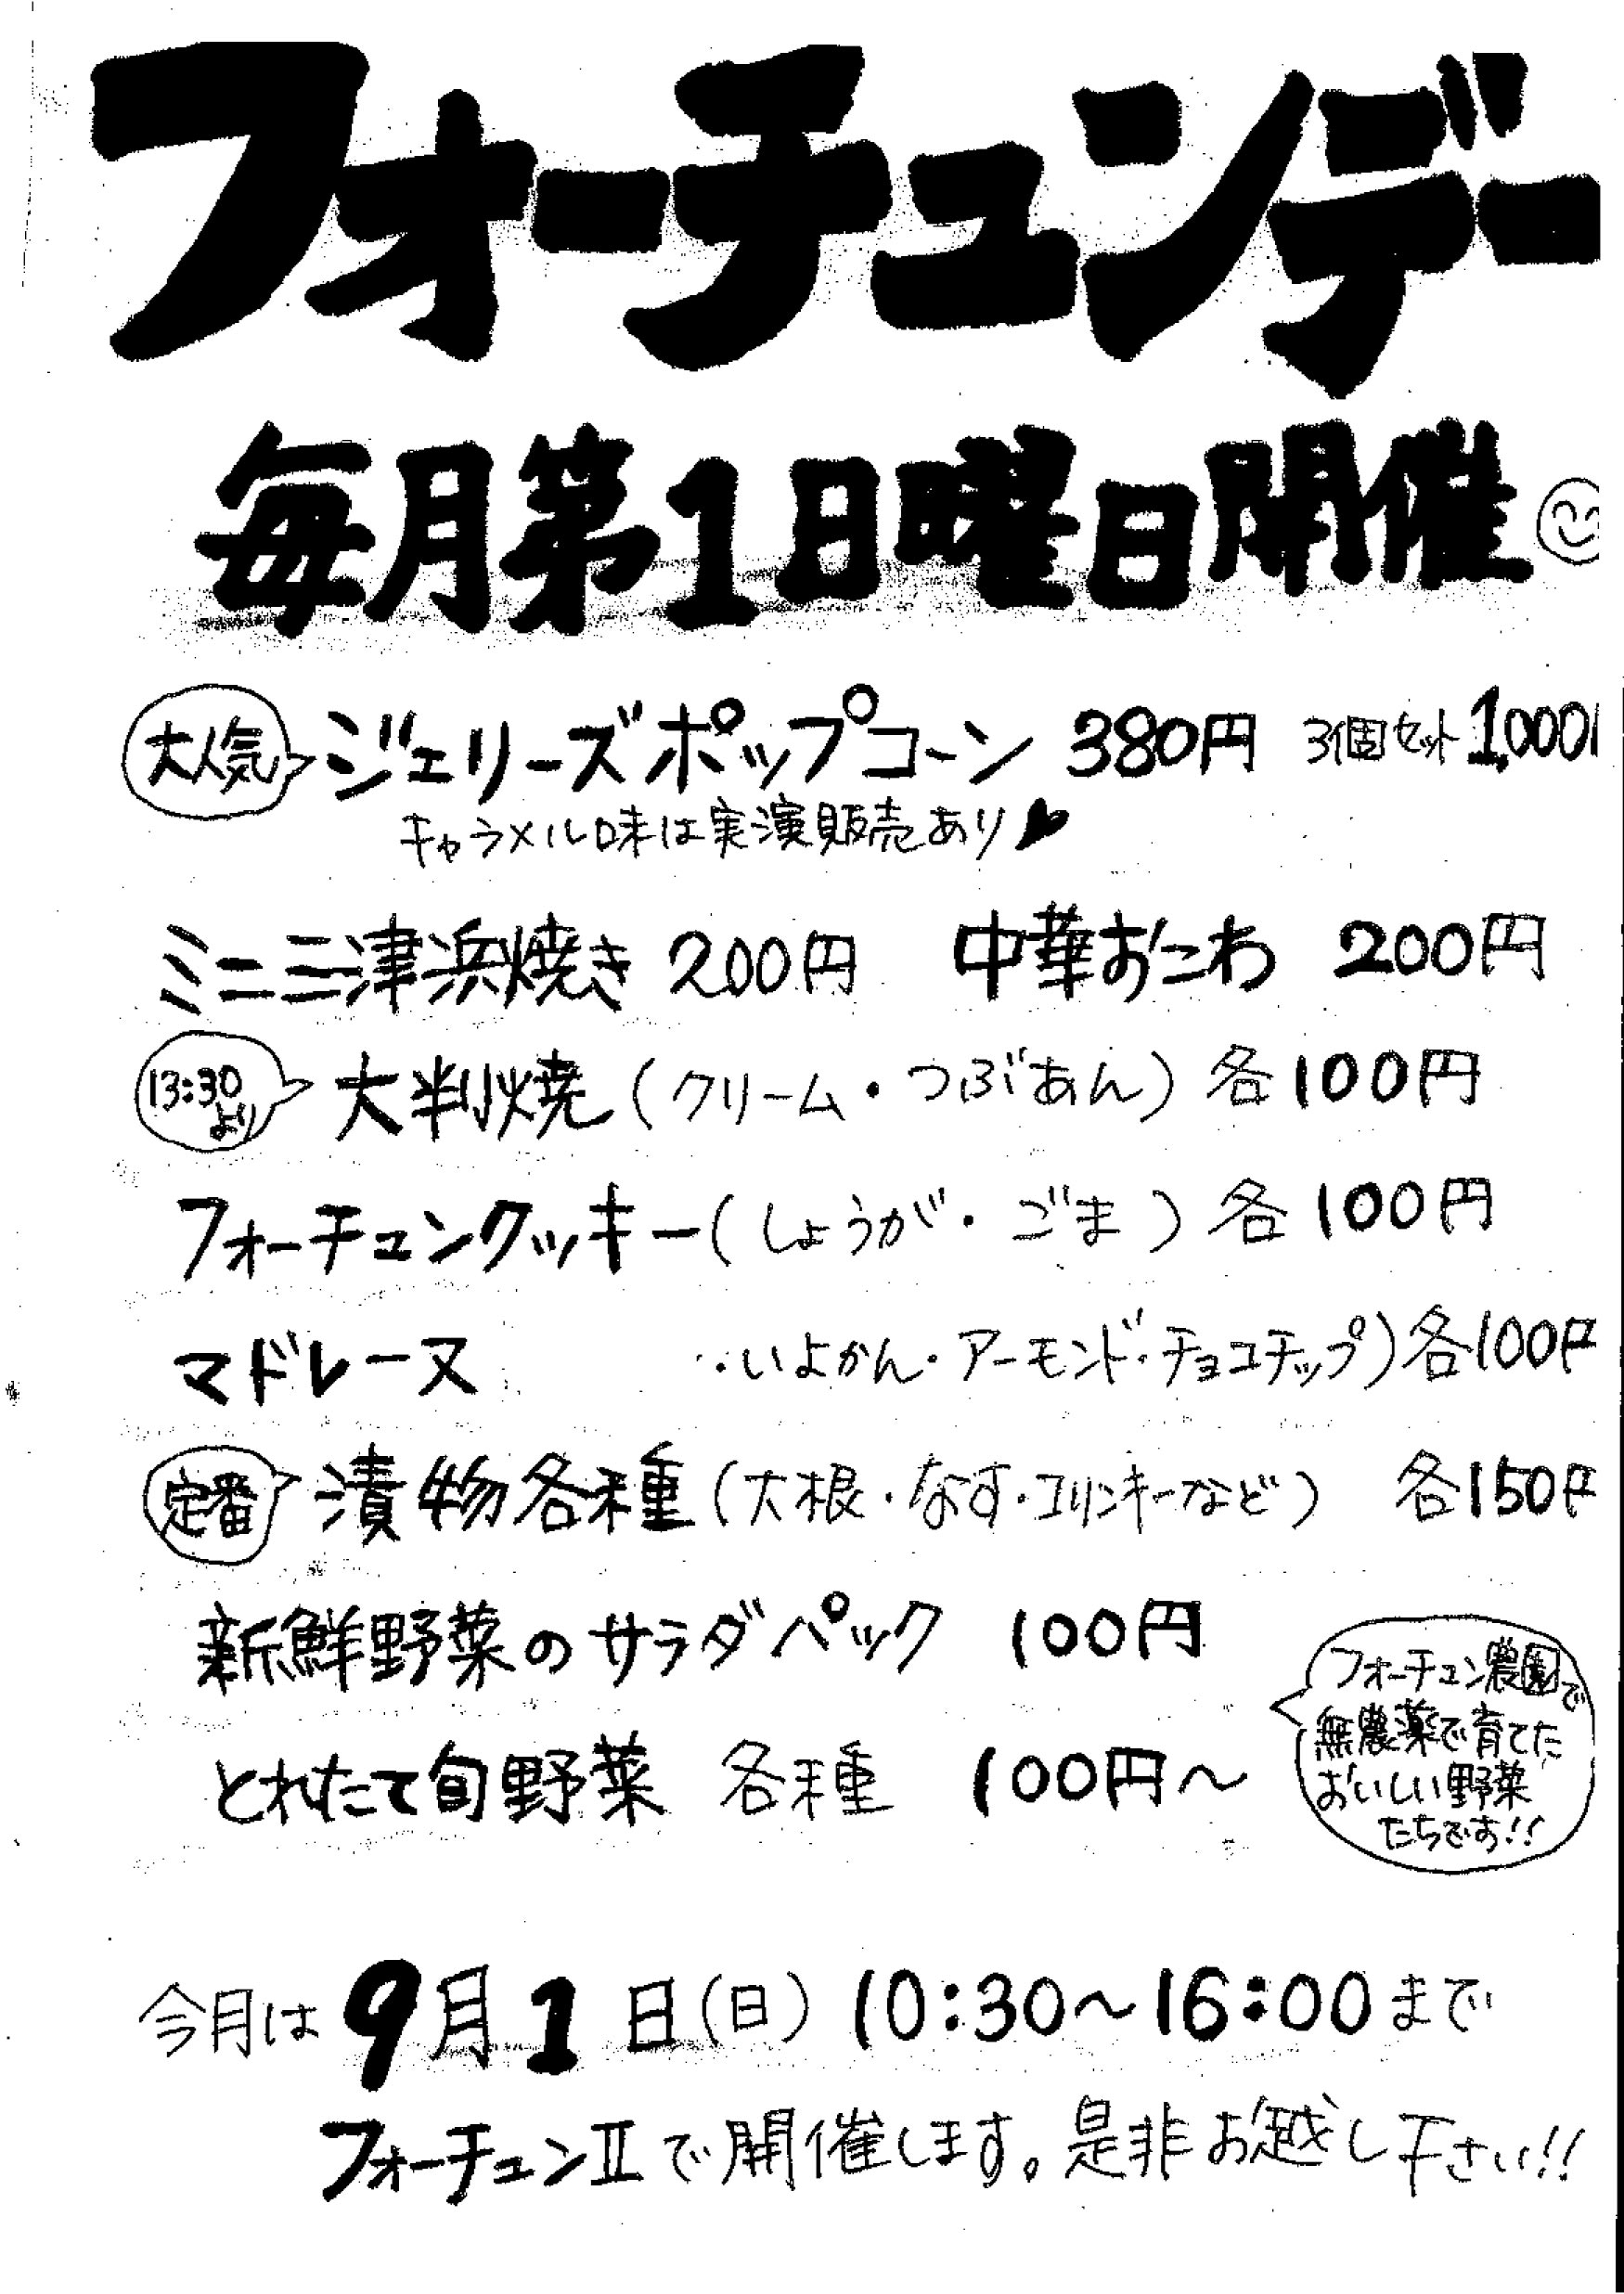 フォーチュンデー
毎月第1日曜日開催
大人気 ジェリーズポップコーン 380円 3個セット 1,000
キャラメル味は実演販売あり♥
ミニ三津浜焼き 200円 中華おこわ 200円
13:30より 大判焼(クリーム・つぶあん) 各100円
フォーチュンクッキー(しょうが・ごま) 各100円
マドレーヌ ・いよかん・アーモンド・チョコチップ) 各100円
定番 漬物各種(大根・なす・コリンキーなど) 各150円
新鮮野菜のサラダパック 100円
とれたて旬野菜 各種 100円〜
フォーチュン農園で
無農薬で育てた
おいしい野菜
たちです!!
今月は9月1日(日) 10:30〜16:00まで
フォーチュンⅡで開催します。是非お越し下さい!!